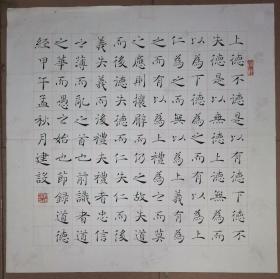 上德不德是以有德下德不
失德是以無德上德無為無
以為下德為之而有以為上
仁為之而無以為上義有為
之而有以為上禮為之而莫
之應則攘臂而扔之故失道
而後德失德而仁失仁而後
義失義而後禮夫禮者忠信
之薄而亂之首也前識者道
之華而愚之始也節録道德
經甲午孟秋月建設